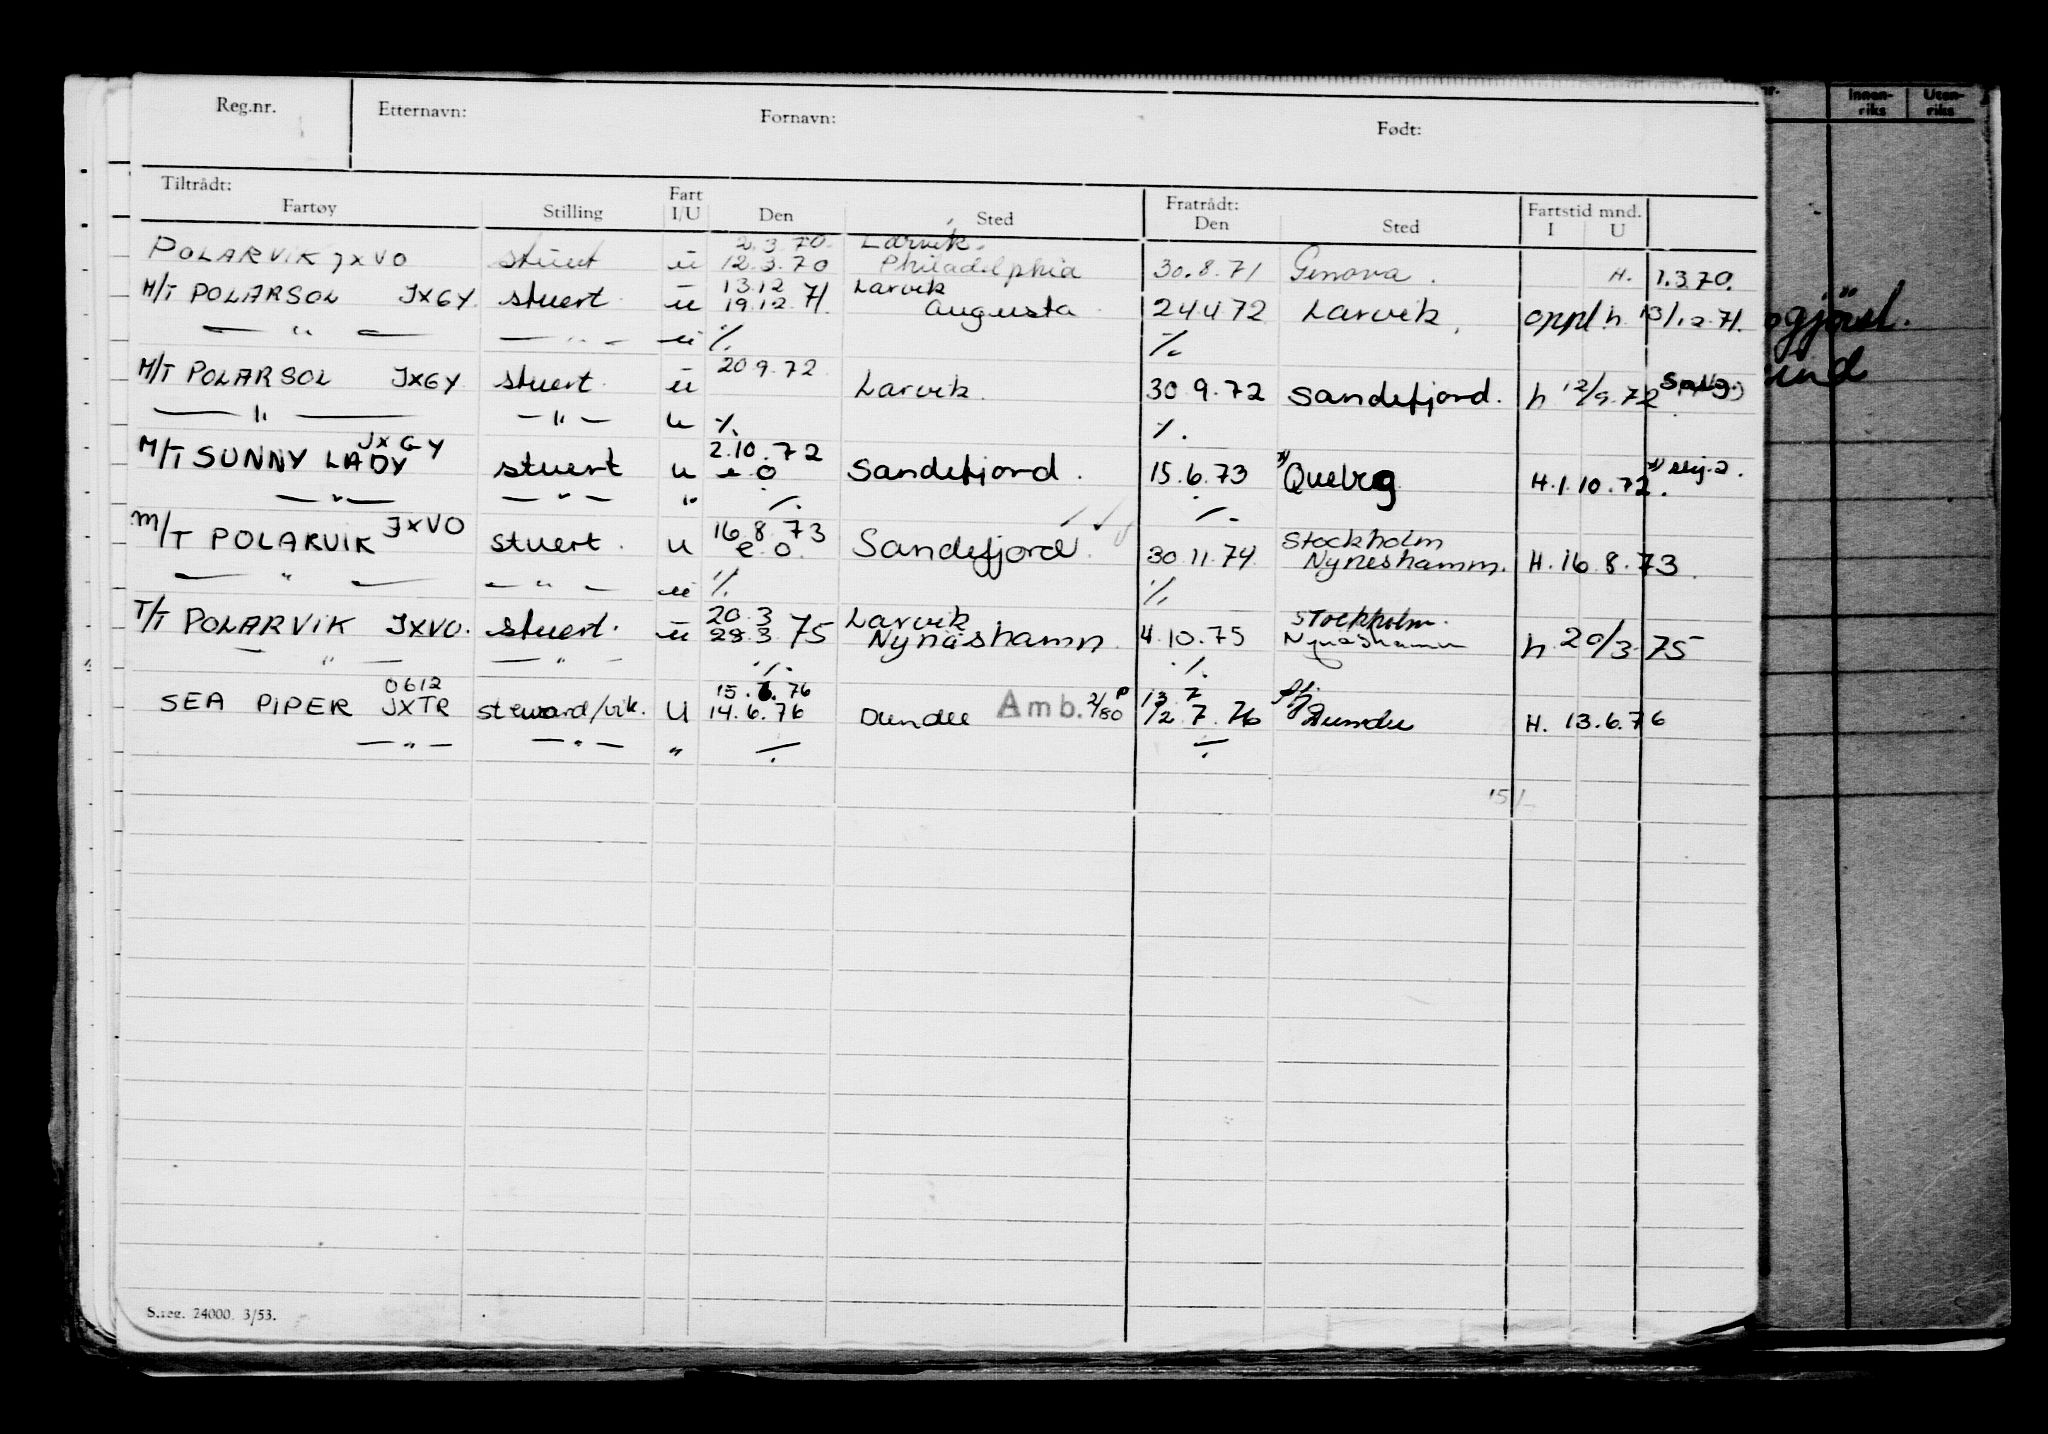 Reg.nr. Etternavn: Fornavn: Født:
Innen-riks Uten-riks
Tiltrådt: Fratrådt:
Fartøy Stilling Fart I/U Den Sted Den Sted Fartstid mnd. I U
2.3.70. Larvik.
POLARVIK JXVO stuert u 12.3.70 Philadelphia 30.8.71 Genova. H. 1.3.70.
13.12 Larvik
M/T POLARSOL JXGY. stuert u 19.12.71. Augusta 24 4 72 Larvik. oppl. h. 13/12.71.
— " — — " — u ./. ./.
20 9.72.
M/T POLARSOL JXGY stuert. u Larvik. 30.9.72 Sandefjord. h 12/9.72
— " — — " — u ./. ./.
JXGY 2.10.72
M/T SUNNY LADY stuert u e o Sandefjord. 15.6.73 H.1.10.72.
— " — — " — " ./. ./.
JXVO 16.8.73 Stockholm
M/T POLARVIK stuert. u e.o. Sandefjord. 30.11.74. Nyneshamm. H.16.8.73.
— " — — " — u ./. ./.
20.3 Larvik Stockholm.
T/T POLARVIK JXVO. stuert. u 28.3.75 Nynäshamn. 4.10.75 Nynäshamn h 20/3-75
— " — — " — ./. ./.
0612 15.6.76 13 7
SEA PIPER JXTR steward/vik. U 14.6.76 Dundee Amb. 2/80 12.7.76 Dundee H. 13.6.76
— " — — " — " ./. ./.
15/
S.reg. 24000. 3/53.